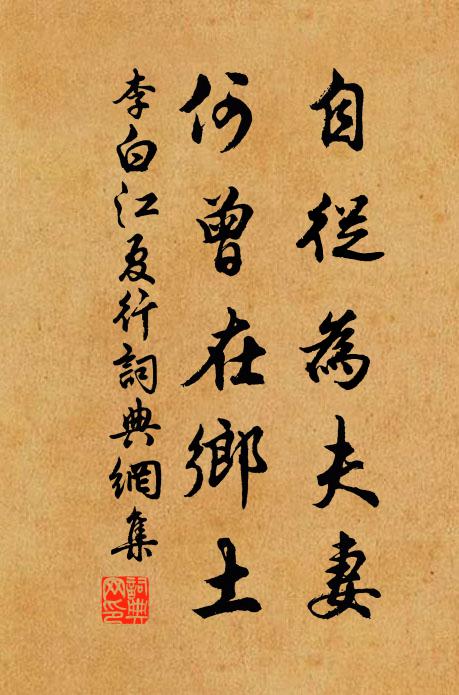 自從為夫妻
何曾在鄉土
李白江夏行詞典網集
詞典網印